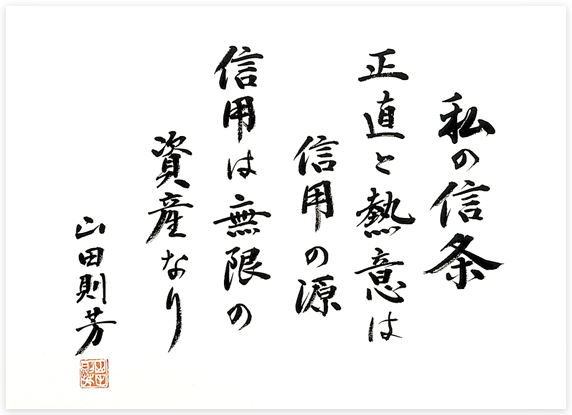 私の信条
正直と熱意は
信用の源
信用は無限の
資産なり
山田則芳